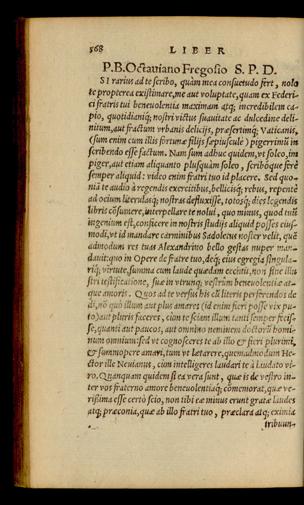 568 LIBER
P. B. Octauiano Fregosio S. P. D.
SI rarius ad te scribo, quàm mea consuetudo fert, nolo
te propterea existimare, me aut voluptate, quam ex Federi-
ci fratris tui beneuolentia maximam atq; incredibilem ca-
pio, quotidianiq; nostri victus suauitate ac dulcedine deli-
nitum, aut fractum vrbanis delicijs, præsertimq; Vaticanis,
(sum enim cum illis fortunæ filijs sæpiuscule) pigerrimũ in
scribendo esse factum. Nam sum adhuc quidem, vt soleo, im
piger, aut etiam aliquanto plusquàm soleo, scriboque ferè
semper aliquid: video enim fratri tuo id placere. Sed quo-
niā te audio à regendis exercitibus, bellicisq; rebus, repentè
ad ocium literulasq; nostras defluxisse, totosq; dies legendis
libris cōsumere, interpellare te nolui, quo minus, quod tuū
ingenium est, conficere in nostris studijs aliquid posses eius-
modi, vt id mandare carminibus Sadoletus noster velit, quē
admodum res tuas Alexandrino bello gestas nuper man-
dauit: quo in Opere de fratre tuo, deq; eius egregia singula-
riq; virtute, summa cum laude quædam cecinit, non sine illu
stri testificatione, suæ in vtrunq; vestrûm beneuolentiæ at-
que amoris. Quos ad te versus his cū literis perferendos de
di, nō quò illum aut plus amares (id enim fieri posse vix pu
to) aut pluris faceres, cùm te sciam illum tanti semper fecis-
se, quanti aut paucos, aut omnino neminem doctorū homi-
num omnium: sed vt cognosceres te ab illo & fieri plurimi,
& summopere amari, tum vt lætarere, quemadmodum Hec
tor ille Neuianus, cùm intelligeres laudari te à laudato vi-
ro. Quanquam quidem si ea vera sunt, quæ is de vestro in-
ter vos fraterno amore beneuolentiaq; cōmemorat, quæ ve-
rissima esse certò scio, non tibi eæ minus erunt gratæ laudes
atq; præconia, quæ ab illo fratri tuo, præclara atq; eximia
tribuun-